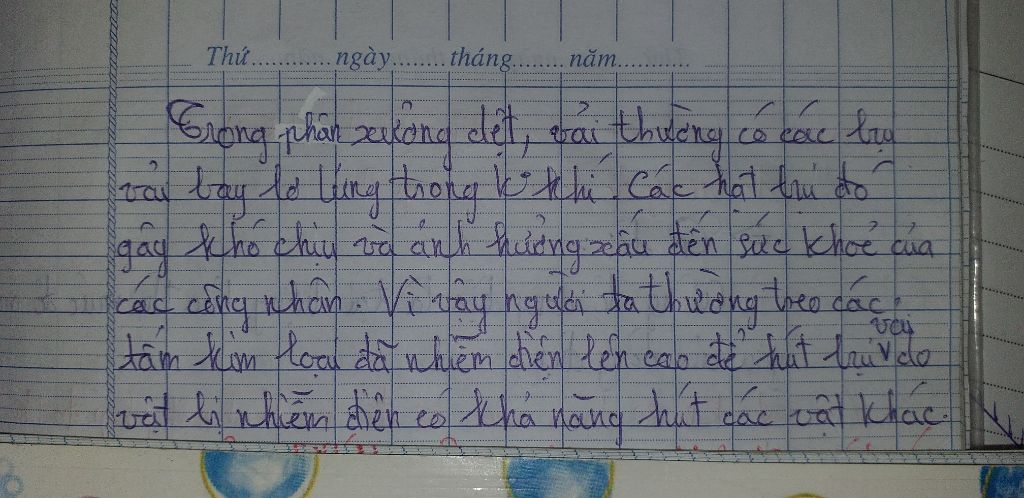 Thứ............ngày........tháng........năm...........
Trong phân xưởng dệt, vải thường có các bụi
vải bay lơ lửng trong k° khí. Các hạt bụi đó
gây khó chịu và ảnh hưởng xấu đến sức khoẻ của
các công nhân. Vì vậy người ta thường treo các
vải
tấm kim loại đã nhiễm điện lên cao để hút bụi v do
vật bị nhiễm điện có khả năng hút các vật khác.